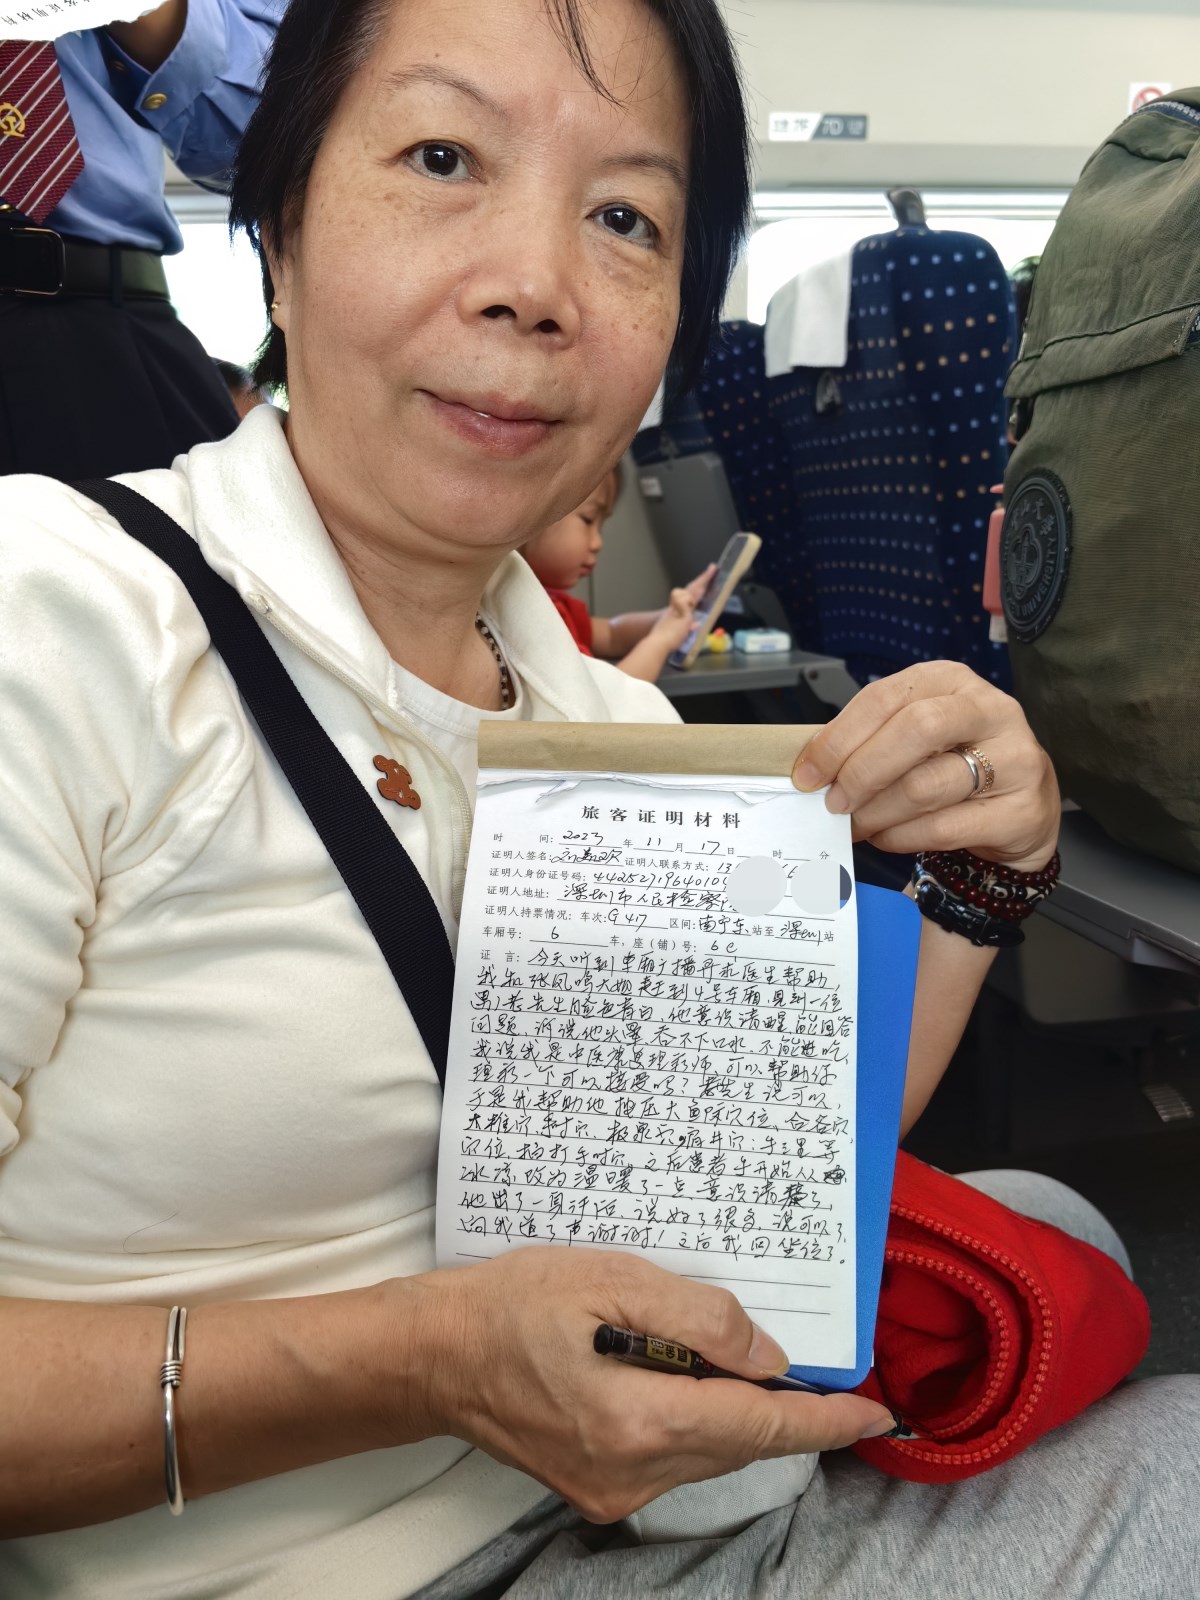 旅客证明材料
时 间：2023 年 11 月 17 日 时 分
证明人签名： 证明人联系方式：13
证明人身份证号码：44252719640103
证明人地址：深圳市人民检察
证明人持票情况：车次：G417 区间：南宁东 站至 深圳 站
车厢号：6 车，座（铺）号：6c
证 言：今天听到车厢广播寻求医生帮助，
我和张凤鸣大姐赶到4号车厢，见到一位
男老先生脸色青白，他意识清醒，能回答
问题，诉说他头晕，吞不下口水，不能进吃，
我说我是中医康复理疗师，可以帮助你
理疗一下可以接受吗？老先生说可以，
于是我帮助他按压大鱼际穴位、合谷穴
大椎穴、肘穴、极泉穴、肩井穴；手三里等
穴位，拍打手肘窝，之后患者手开始从
冰凉改为温暖了一点，意识清楚了，
他出了一身汗后，说好了很多，说可以了，
向我道了声谢谢！之后我回坐位了。